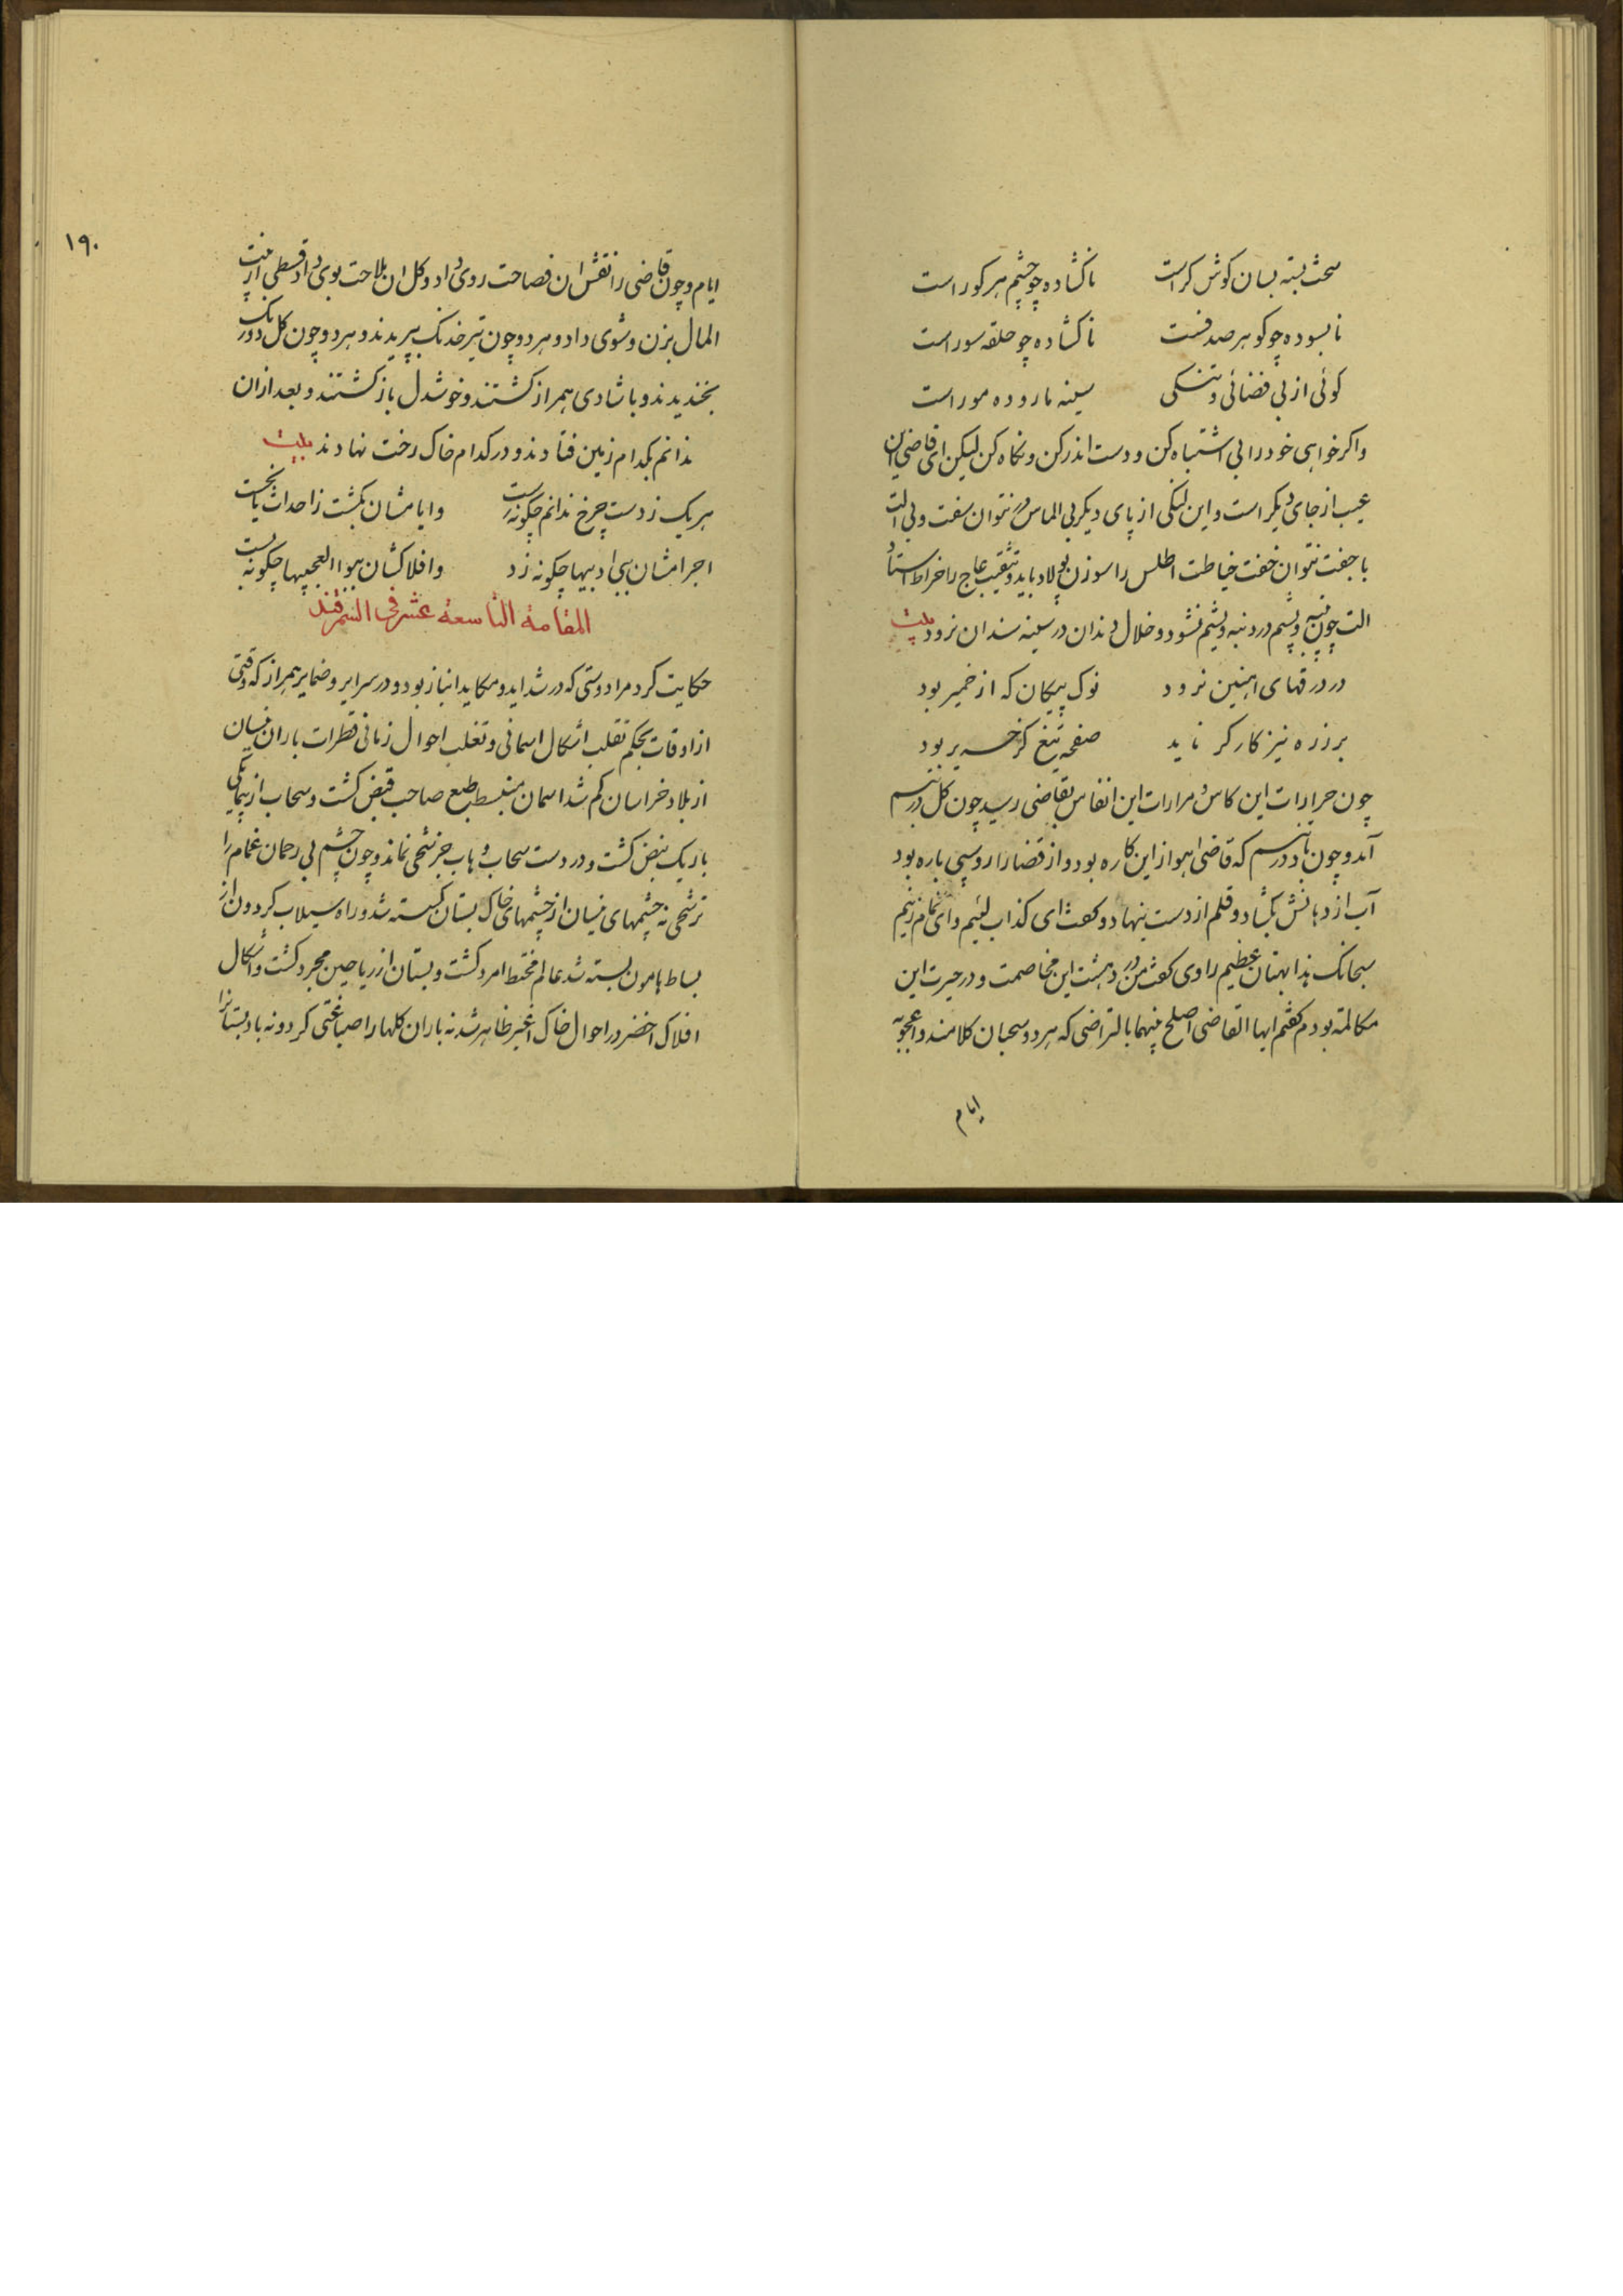 سخت بسته بسان کوش کراست ناکشاده چو چشم هر کور است
نابسوده چو کوهر صدفست ناکشاده چو حلقه سور است
کوئی از بی فضائی و تنکی سینه مار و ده مور است
واکر خواهی خود را بی اشتباه کن و دست اندر کن و نکاه کن لیکن ای قاضی این
عیب از جای دیکر است و این لنکی از پای دیکر بی الماس در نتوان سفت و بی الت
با جفت نتوان خفت خیاطت اطلس را سوزن پولاد باید و تثقیب عاج را خراط استاد
الت چون پنبه و پشم در دنبه و یشم نشود و خلال دندان در سینه سندان نرود بیت
در درقهای اهنین نرود نوک پیکان که از خمیر بود
بر زره نیز کارکر ناید صفحه تیغ کز حریر بود
چون حرارات این کاس و مرارات این انفاس بقاضی رسید چون کل در تبسم
آمد و چون باد در تنسم که قاضی اهواز این کاره بود و از قضا را روسپی باره بود
آب از دهانش بکشاد و قلم از دست بنهاد و کفت ای کذاب لئیم و ای نمام زنیم
سبحانک هذا بهتان عظیم راوی کفت من در دهشت این مخاصمت و در حیرت این
مکالمة بودم کفتم ایها القاضی اصلح بینهما بالتراضی که هر دو سحبان کلامند و اعجوبه
ایام
۱۹۰
ایام و چون قاضی را نقش ان فصاحت روی داد و کل ان بلاحت بوی داد قسطی از بیت
المال بزن و شوی داد و هر دو چون تیر خدنک بپریدند و هر دو چون کل دو رنک
بخندیدند و با شادی همراز کشتند و خوشدل باز کشتند و بعد از ان
ندانم بکدام زمین فتادند و در کدام خاک رخت نهادند بیت
هر یک ز دست چرخ ندانم چکونه رست وایامشان بکشت ز احداث یا بخست
اجرامشان ببی ادبیها چکونه زد وافلاکشان ببوالعجبیها چکونه بست
المقامة التاسعة عشر فی السمرقند
حکایت کرد مرا دوستی که در شداید و مکاید انباز بود و در سرایر و ضمایر همراز که وقتی
از اوقات بحکم تقلب اشکال اسمانی و تغلب احوال زمانی قطرات باران نیسان
از بلاد خراسان کم شد اسمان منبسط طبع صاحب قبض کشت و سحاب از پیمایکی
باریک نبض کشت و در دست سحاب وهاب جز شحی نماند و چون چشم بی رحمان غمام را
ترشحی نه چشمهای نیسان از چشمهای خاک بستان کسسته شد و راه سیلاب کردون از
بساط هامون بسته شد عالم مختط امرد کشت و بستان از ریاحین مجرد کشت و اشکال
افلاک اخضر در احوال خاک اغبر ظاهر شد نه باران کلها را صباغتی کرد و نه باد بستانرا